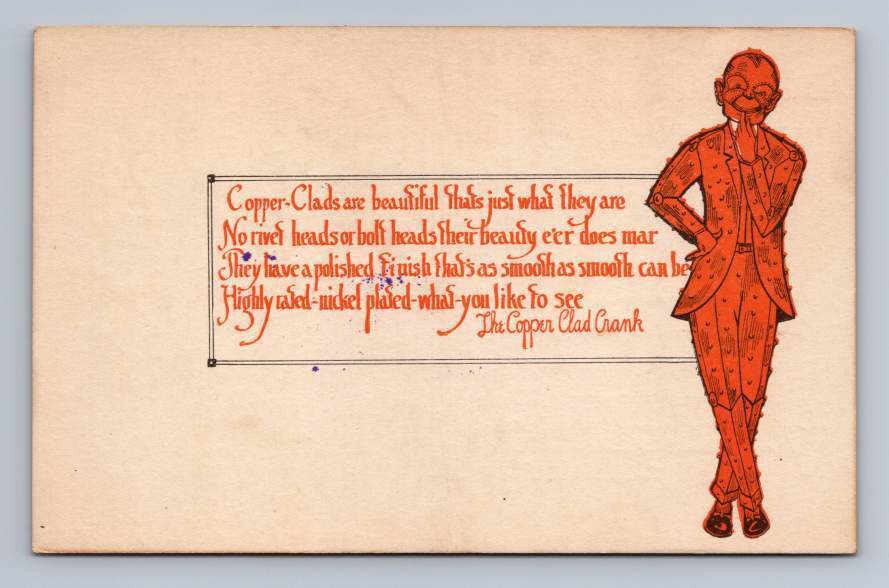 Copper-Clads are beautiful thats just what they are
No rivet heads or bolt heads their beauty e'er does mar
They have a polished finish that's as smooth as smooth can be
Highly rated-nickel plated-what-you like to see
The Copper Clad Crank